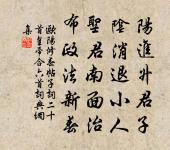 陽進升君子
陰消退小人
聖君南面治
布政法新春
歐陽修春帖子詞二十
首皇帝合六首詞典網
集